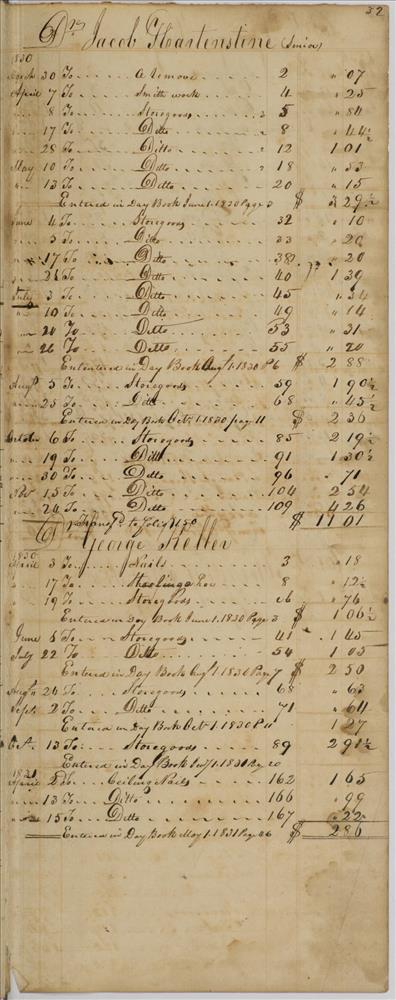 32
Dr. Jacob Hartenstine (Senior)
1830
30 To A remove 2 " 07
April 7 To Smith work 4 " 25
" 8 To Storegoods 5 " 84
" 17 To Ditto 8 " 44½
" 28 To Ditto 12 1 01
May 10 To Ditto 18 " 53
" 13 To Ditto 20 " 15
Entered in Day Book June 1. 1830 Page 3 $ 3 29½
June 4 To Storegoods 32 " 10
" 5 To Ditto 33 " 20
" 17 To Ditto 38 " 20
" 21 To Ditto 40 1 39
July 3 To Ditto 45 " 34
" 10 To Ditto 49 " 14
" 24 To Ditto 53 " 31
" 26 To Ditto 55 " 20
Entered in Day Book Augt 1. 1830 P 6 $ 2 88
Augt 5 To Storegoods 59 1 90½
" 25 To Ditto 68 " 45½
Entered in Day Book Octr 1. 1830 page 11 $ 2 36
October 6 To Storegoods 85 2 19½
" 19 To Ditto 91 1 30½
" 30 To Ditto 96 " 71
Nov 15 To Ditto 104 2 54
" 24 To Ditto 109 4 26
to folio 150 $ 11 01
Dr George Keller
1830
April 3 To Nails 3 " 18
" 17 To 8 " 12½
" 19 To Storegoods " 76
Entered in Day Book June 1. 1830 Page 3 $ 1 06½
June 5 To Storegoods 41 1 45
July 22 To Ditto 54 1 05
Entered in Day Book Augt 1. 1830 Page 7 $ 2 50
Augt 26 To Storegoods 68 " 63
Sept. 2 To Ditto 71 " 64
Entered in Day Book Octr 1. 1830 P 11 1 27
Oct. 13 To Storegoods 89 2 91½
Entered in Day Book 1. 1831 Pag 20
1831
April 2 To Ceiling Nails 162 1 65
" 13 To Ditto 166 " 99
" 15 To Ditto 167 " 22
Entered in Day Book May 1. 1831 Page 26 $ 2 86